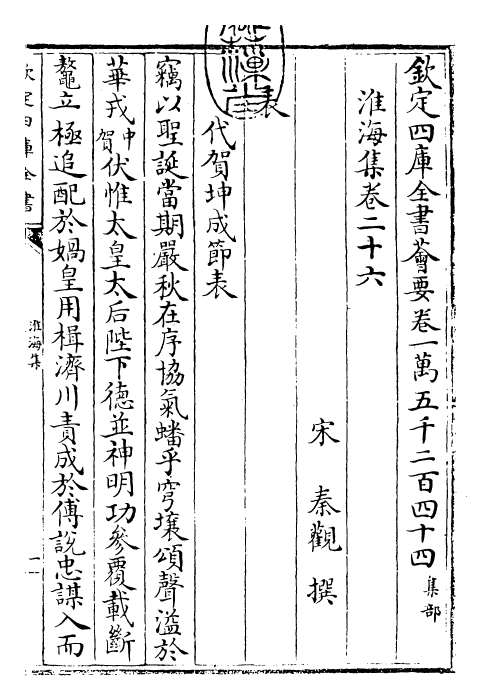 欽定四庫全書薈要卷一萬五千二百四十四 集部
淮海集卷二十六
宋 秦觀 撰
表
代賀坤成節表
竊以聖誕當期嚴秋在序協氣蟠乎穹壤頌聲溢於
華戎中賀伏惟太皇太后陛下德並神明功參覆載斷
鼇立極追配於媧皇用楫濟川責成於傅說忠謀入而
欽定四庫全書
淮海集
一